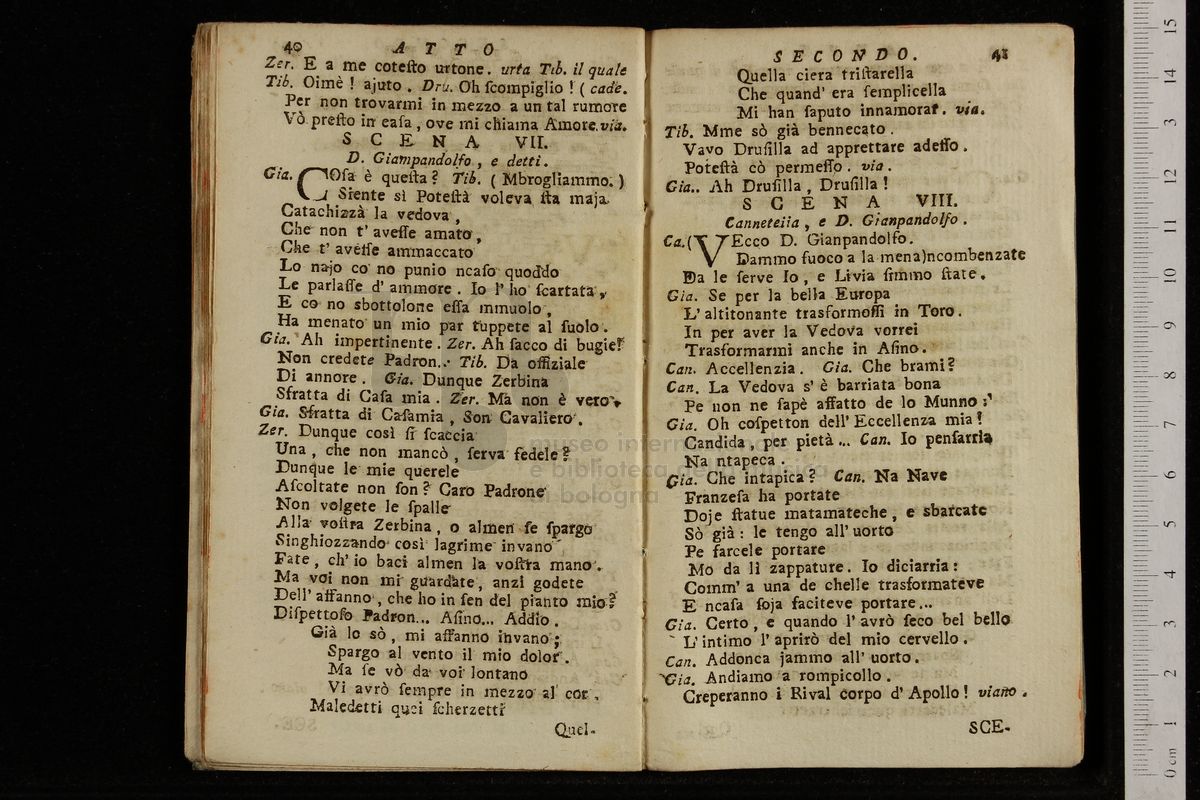 40 A T T O
Zer. E a me coteſto urtone. urta Tib. il quale
Tib. Oimè ! ajuto . Dru. Oh ſcompiglio ! ( cade.
Per non trovarmi in mezzo a un tal rumore
Vò preſto in caſa , ove mi chiama Amore. via.
S C E N A VII.
D. Giampandolfo , e detti.
Gia. COſa è queſta ? Tib. ( Mbrogliammo. )
Siente sì Poteſtà voleva ſta maja
Catachizzà la vedova ,
Che non t' aveſſe amato ,
Che t' aveſſe ammaccato
Lo najo co no punio ncaſo quoddo
Le parlaſſe d' ammore . Io l' ho ſcartata ,
E co no sbottolone eſſa mmuolo ,
Ha menato un mio par tuppete al ſuolo .
Gia. Ah impertinente . Zer. Ah ſacco di bugie!
Non credete Padron.. Tib. Da offiziale
Di annore . Gia. Dunque Zerbina
Sfratta di Caſa mia . Zer. Ma non è vero.
Gia. Sfratta di Caſamia , Son Cavaliero .
Zer. Dunque così ſi ſcaccia
Una , che non mancò , ſerva fedele ?
Dunque le mie querele
Aſcoltate non ſon ? Caro Padrone
Non volgete le ſpalle
Alla voſtra Zerbina , o almen ſe ſpargo
Singhiozzando così lagrime invano
Fate , ch' io baci almen la voſtra mano .
Ma voi non mi guardate , anzi godete
Dell' affanno , che ho in ſen del pianto mio?
Diſpettoſo Padron... Aſino... Addio .
Già lo sò , mi affanno invano ;
Spargo al vento il mio dolor .
Ma ſe vò da voi lontano
Vi avrò ſempre in mezzo al cor .
Maledetti quei ſcherzetti
Quel-
S E C O N D O . 41
Quella ciera triſtarella
Che quand' era ſemplicella
Mi han ſaputo innamorar . via.
Tib. Mme sò già bennecato .
Vavo Druſilla ad apprettare adeſſo .
Poteſtà cò permeſſo . via .
Gia.. Ah Druſilla , Druſilla !
S C E N A VIII.
Cannetella , e D. Gianpandolfo .
Ca. ( VEcco D. Gianpandolfo.
Dammo fuoco a la mena)ncombenzate
Da le ſerve Io , e Livia ſimmo ſtate .
Gia. Se per la bella Europa
L' altitonante trasformoſſi in Toro .
In per aver la Vedova vorrei
Trasformarmi anche in Aſino .
Can. Accellenzia . Gia. Che brami ?
Can. La Vedova s' è barriata bona
Pe non ne ſapè affatto de lo Munno ;
Gia. Oh coſpetton dell' Eccellenza mia !
Candida , per pietà ... Can. Io penſarria
Na ntapeca .
Gia. Che intapica ? Can. Na Nave
Franzeſa ha portate
Doje ſtatue matamateche , e sbarcate
Sò già : le tengo all' uorto
Pe farcele portare
Mo da li zappature . Io diciarria :
Comm' a una de chelle trasformateve
E ncaſa ſoja faciteve portare ...
Gia. Certo , e quando l' avrò ſeco bel bello
L' intimo l' aprirò del mio cervello .
Can. Addonca jammo all' uorto .
Gia. Andiamo a rompicollo .
Creperanno i Rival corpo d' Apollo ! viano .
SCE-